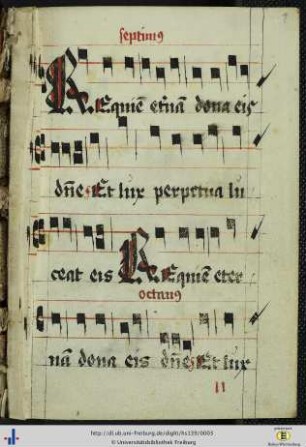 septimus
REquiē etnā dona eis
dñe Et lux perpetua lu
ceat eis REquiē eter
octaus
nā dona eis dñe Et lux
http://dl.ub.uni-freiburg.de/diglit/hs1139/0003
© Universitätsbibliothek Freiburg